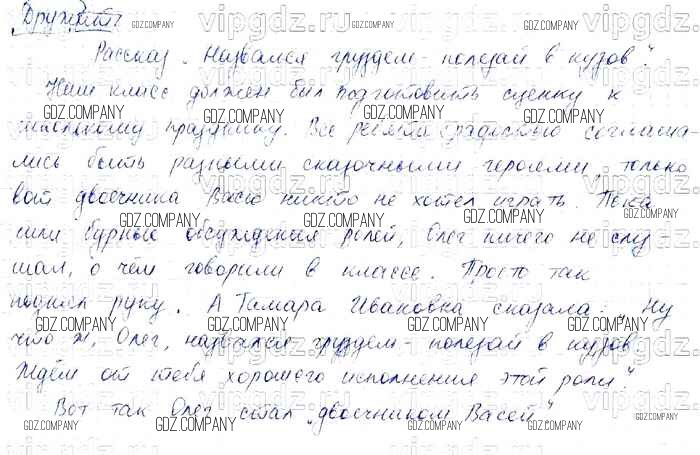 Дружить
Рассказ „Назвался груздем - полезай в кузов".
Наш класс должен был подготовить сценку к
школьному празднику. Все ребята с радостью соглаша-
лись быть разными сказочными героями, только
вот двоечника Васю никто не хотел играть. Пока
шли бурные обсуждения ролей, Олег ничего не слу-
шал, о чём говорили в классе. Просто так
поднял руку. А Тамара Ивановна сказала: „Ну
что ж, Олег, назвался груздем - полезай в кузов.
Ждём от тебя хорошего исполнения этой роли."
Вот так Олег стал „двоечником Васей"
GDZ.COMPANY
vipgdz.ru